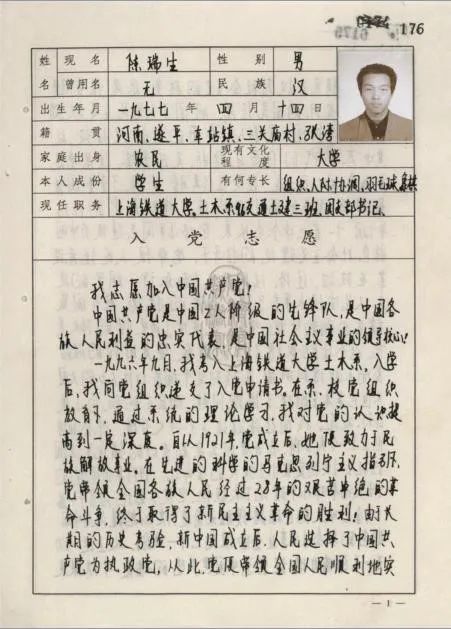 176
姓 现名 陈瑞生 性别 男
名 曾用名 无 民族 汉
出生年月 一九七七 年 四 月 十四 日
籍贯 河南、遂平、车站镇、三关庙村、张湾
家庭出身 农民 现有文化程度 大学
本人成份 学生 有何专长 组织、人际协调、羽毛球、象棋
现任职务 上海铁道大学、土木系 交通土建三班、团支部书记、
入党志愿
我志愿加入中国共产党！
中国共产党是中国工人阶级的先锋队，是中国各
族人民利益的忠实代表，是中国社会主义事业的领导核心！
一九九六年九月，我考入上海铁道大学土木系，入学
后，我向党组织递交了入党申请书。在系、校党组织
教育下，通过系统的理论学习，我对党的认识提
高到一定深度。自从1921年党成立后，她便致力于民
族解放事业，在先进的科学的马克思列宁主义指引下，
党带领全国各族人民经过28年的艰苦卓绝的革
命斗争，终于取得了新民主主义革命的胜利；由于长
期的历史考验，新中国成立后，人民选择了中国共
产党为执政党，从此，党便带领全国人民顺利地实
— 1 —